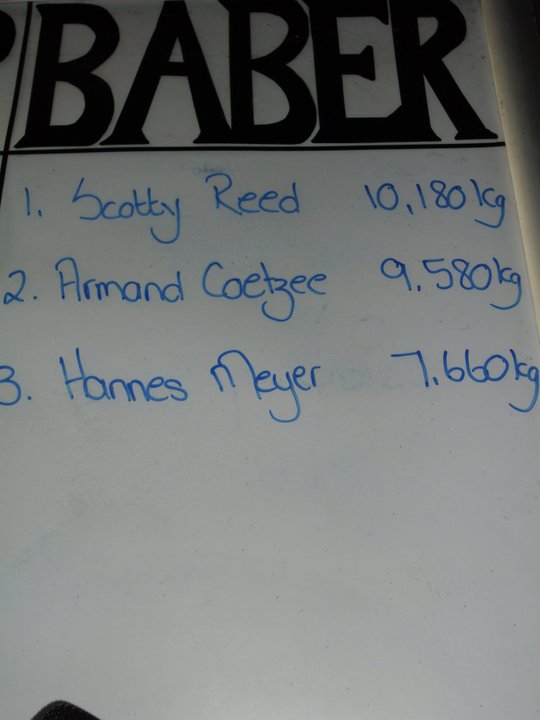 BABER
1. Scotty Reed 10,180kg
2. Armand Coetzee 9.580kg
3. Hannes Meyer 7.660kg